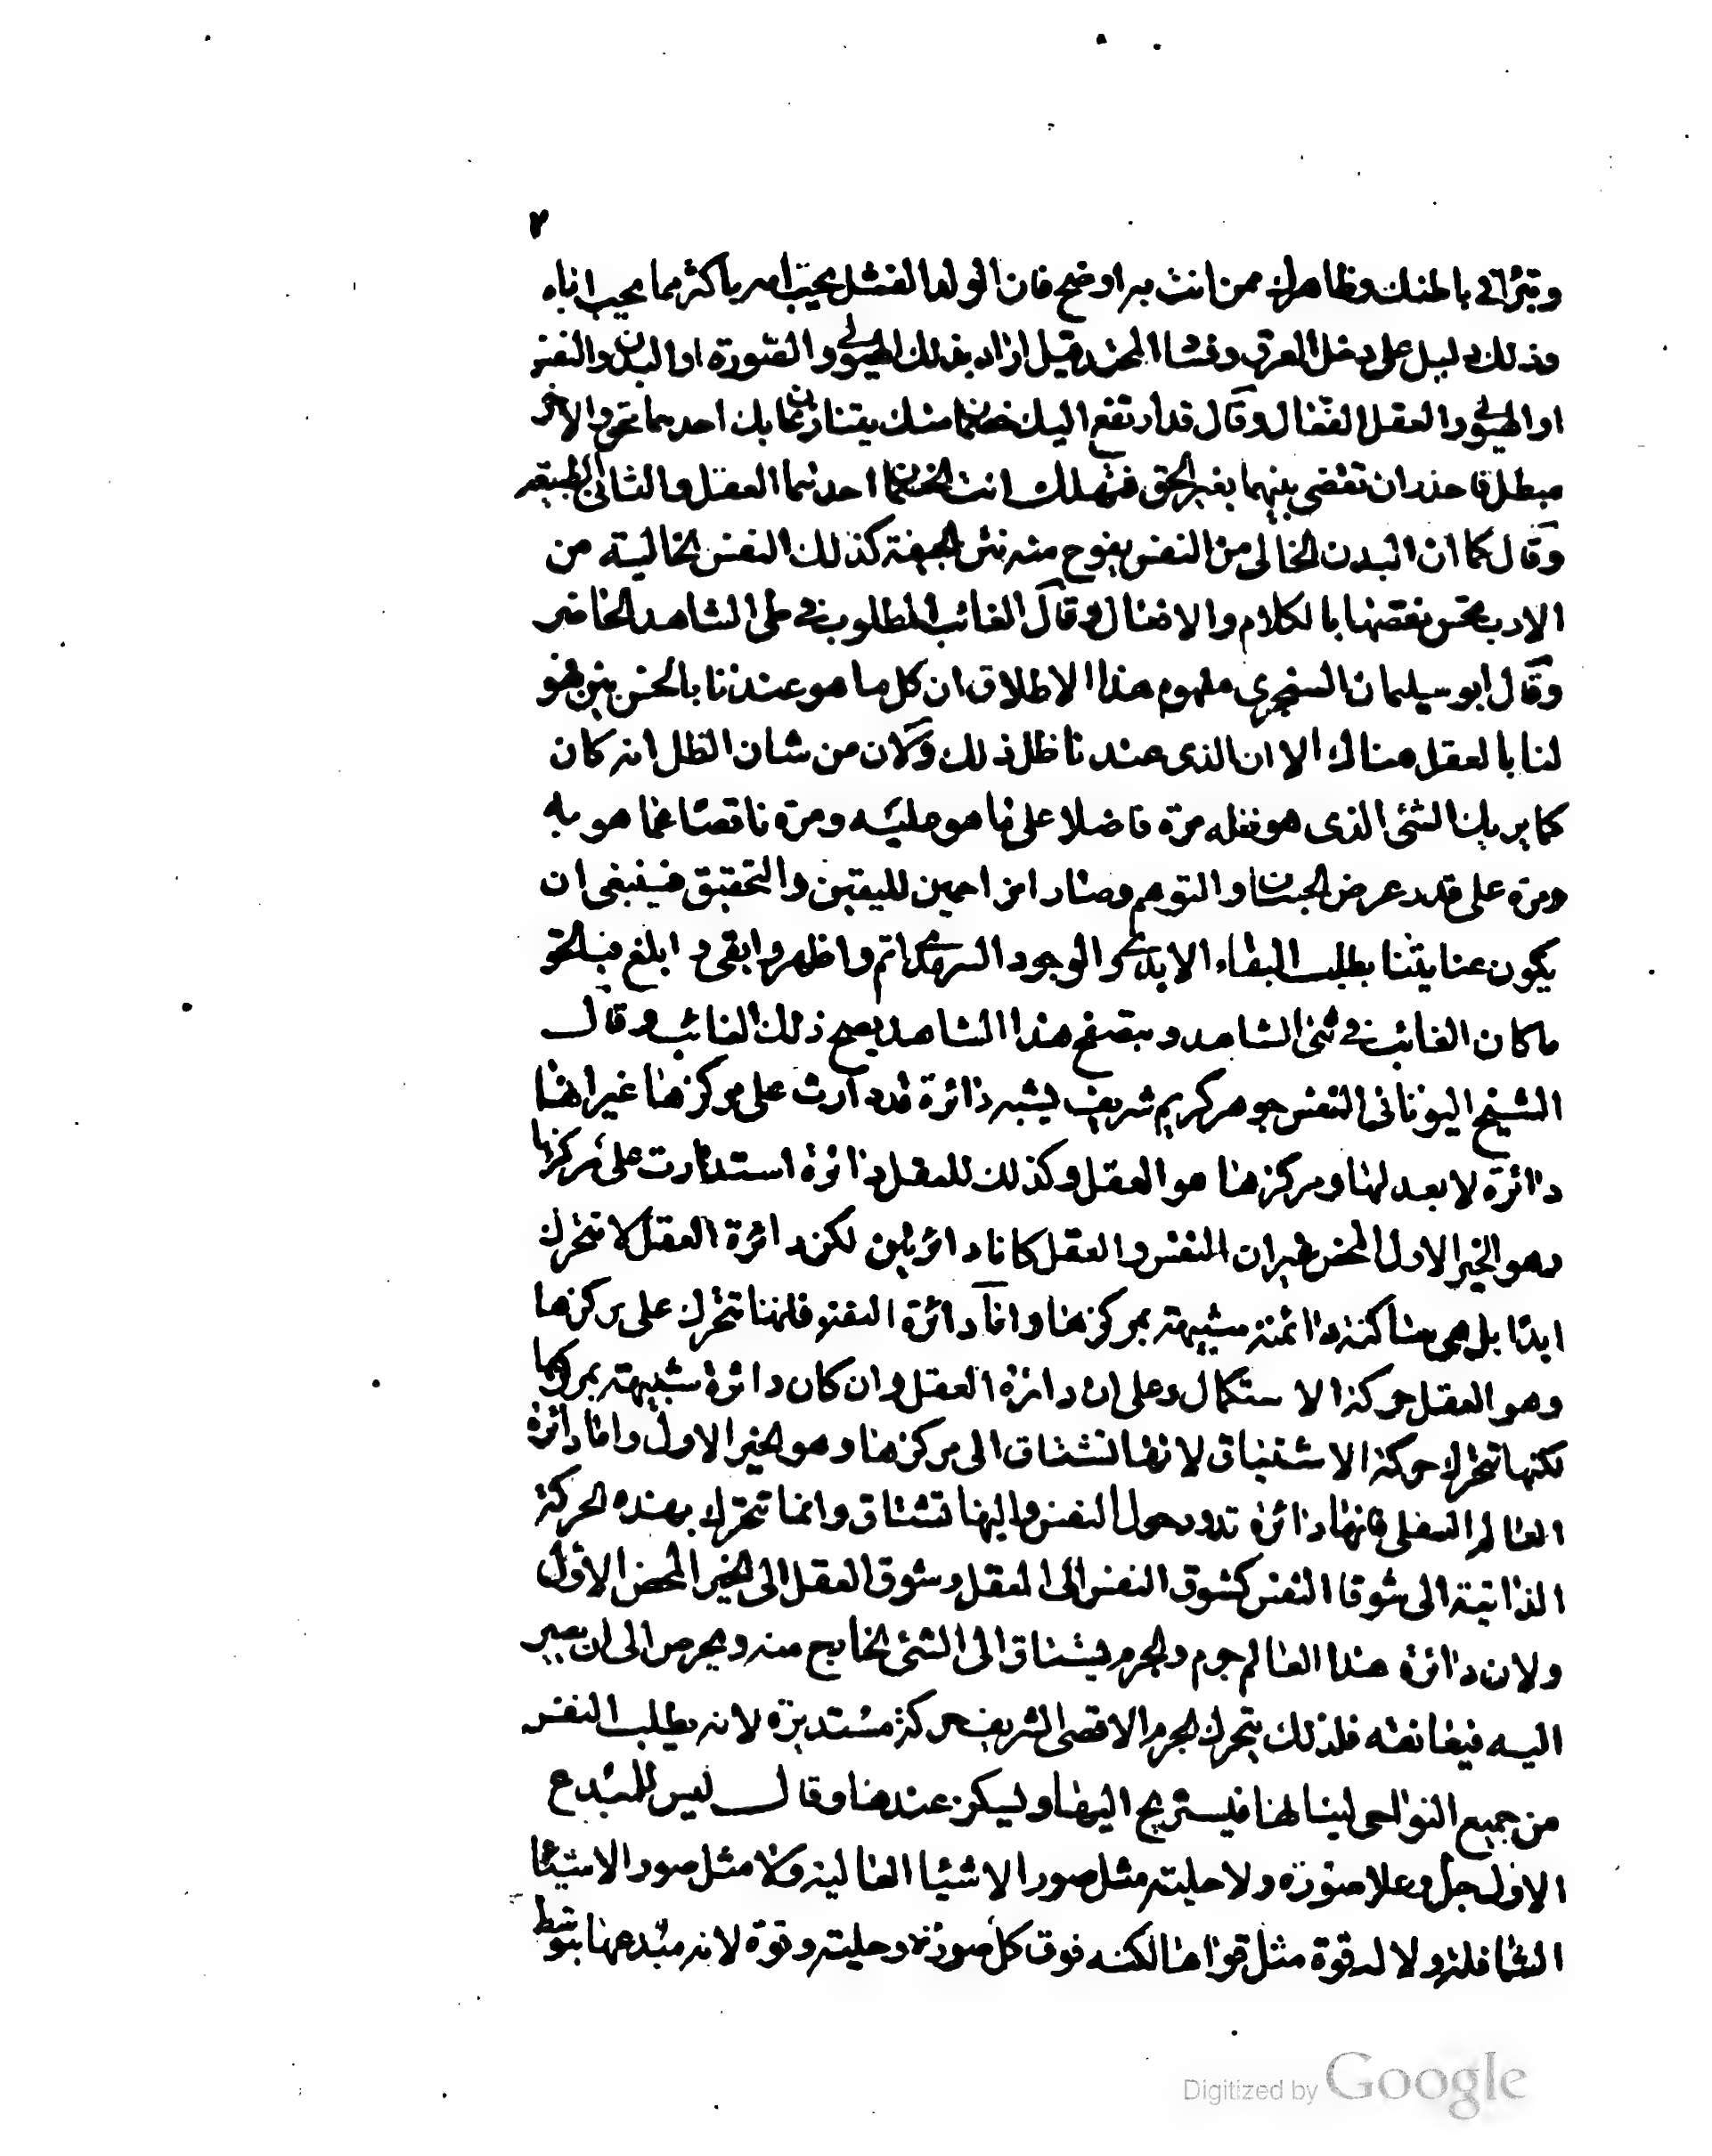 ٢
وتترائى باطنك وظاهرك ممن انت به اوضح فان الولد الفشل يحب امه باكثر مما يحب اباه
وذلك دليل على دخل العرق وفساد المحتد وقيل اراد بذلك الهيولى والصورة او البدن والنفس
او الهيولى والعقل الفعال وقال قد ارتفع اليك خصمان منك يتنازعان بك احدهما محق والاخر
مبطل فاحذر ان تقضى بينهما بغير الحق فتهلك انت الخصمان احدهما العقل والثانى الطبيعه
وقال كما ان البدن الخالى من النفس يفوح منه نتن الجيفة كذلك النفس الخالية من
الادب يحس نقصها بالكلام والافعال وقال الغائب المطلوب فى طى الشاهد الحاضر
وقال ابو سليمان السنجرى مفهوم هذا الاطلاق ان كل ما هو عندنا بالحس بين فهو
لنا بالعقل هناك الا ان الذى عندنا ظل ذلك ولان من شان الظل انه كان
كما يريك الشئ الذى هو ظله مرة فاضلا على ما هو عليه ومرة ناقصا عما هو به
ومرة على قدر عرض الحسبان والتوهم وصارا مزاحمين لليقين والتحقيق فينبغى ان
يكون عنايتنا بطلب البقاء الابدى والوجود السرمدى اتم واظهر وابقى وابلغ فبالحق
ما كان الغائب فى طى الشاهد وبتصفح هذا الشاهد يصح ذلك الغائب وقال
الشيخ اليونانى النفس جوهر كريم شريف يشبه دائرة قد دارت على مركزها غير انها
دائرة لا بعد لها ومركزها هو العقل وكذلك للعقل دائرة استدارت على مركزها
وهو الخير الاول المحض غير ان النفس والعقل كانا دائرتين لكن دائرة العقل لا تتحرك
ابدا بل هى ساكنة دائمة شبيهة بمركزها واما دائرة النفس فانها تتحرك على مركزها
وهو العقل حركة الاستكمال وعلى ان دائرة العقل وان كان دائرة شبيهة بمركزها
لكنها تتحرك حركة الاشتياق لانها تشتاق الى مركزها وهو الخير الاول واما دائرة
العالم السفلى فانها دائرة تدور حول النفس واليها تشتاق وانما تتحرك بهذه الحركة
الذاتية الى شوقا النفس كشوق النفس الى العقل وشوق العقل الى الخير المحض الاول
ولان دائرة هذا العالم جرم والجرم يشتاق الى الشئ الخارج منه ويحرص الى ان يصير
اليه فيعانقه فلذلك يتحرك الجرم الاقصى الشريف حركة مستديرة لانه يطلب النفس
من جميع النواحى لينالها فيستريح اليها ويسكن عندها وقال ليس للمبدع
الاول جل وعلا صورة ولا حلية مثل صور الاشيا العالية ولا مثل صور الاشيا
السافلة ولا له قوة مثل قواها لكنه فوق كل صورة وحلية وقوة لانه مبدعها بتوسط
Digitized by Google